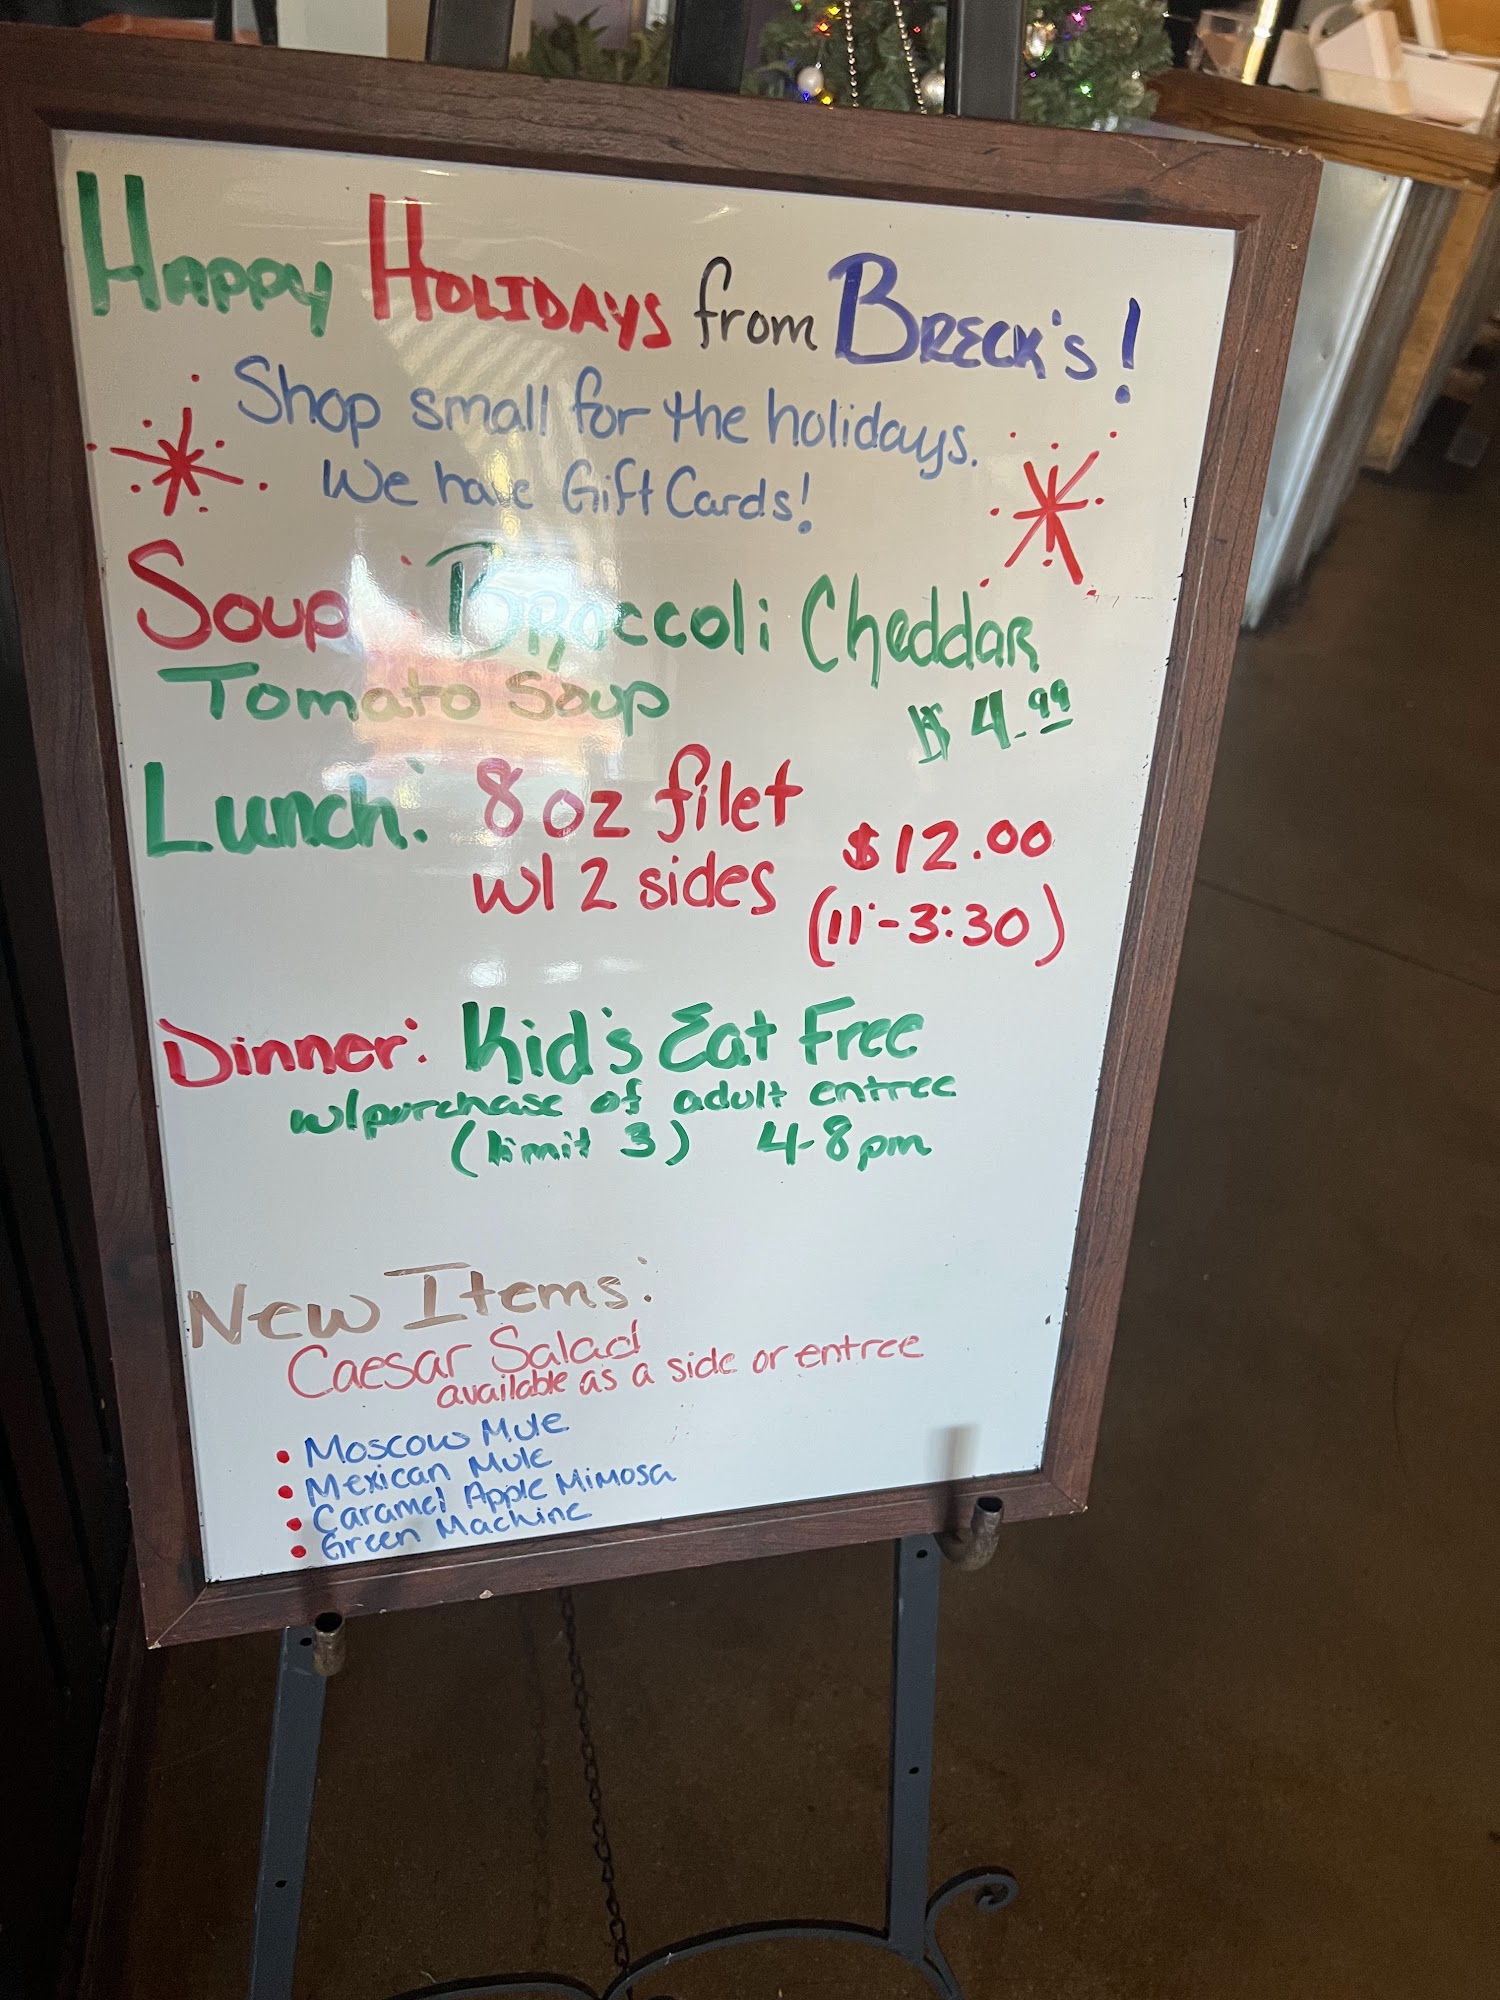 Happy Holidays from Breck's!
Shop small for the holidays.
We have Gift Cards!
Soup: Broccoli Cheddar
Tomato Soup $4.99
Lunch: 8oz filet
w/ 2 sides $12.00
(11:-3:30)
Dinner: Kid's Eat Free
w/purchase of adult entree
(limit 3) 4-8pm
New Items:
Caesar Salad
available as a side or entree
• Moscow Mule
• Mexican Mule
• Caramel Apple Mimosa
• Green Machine